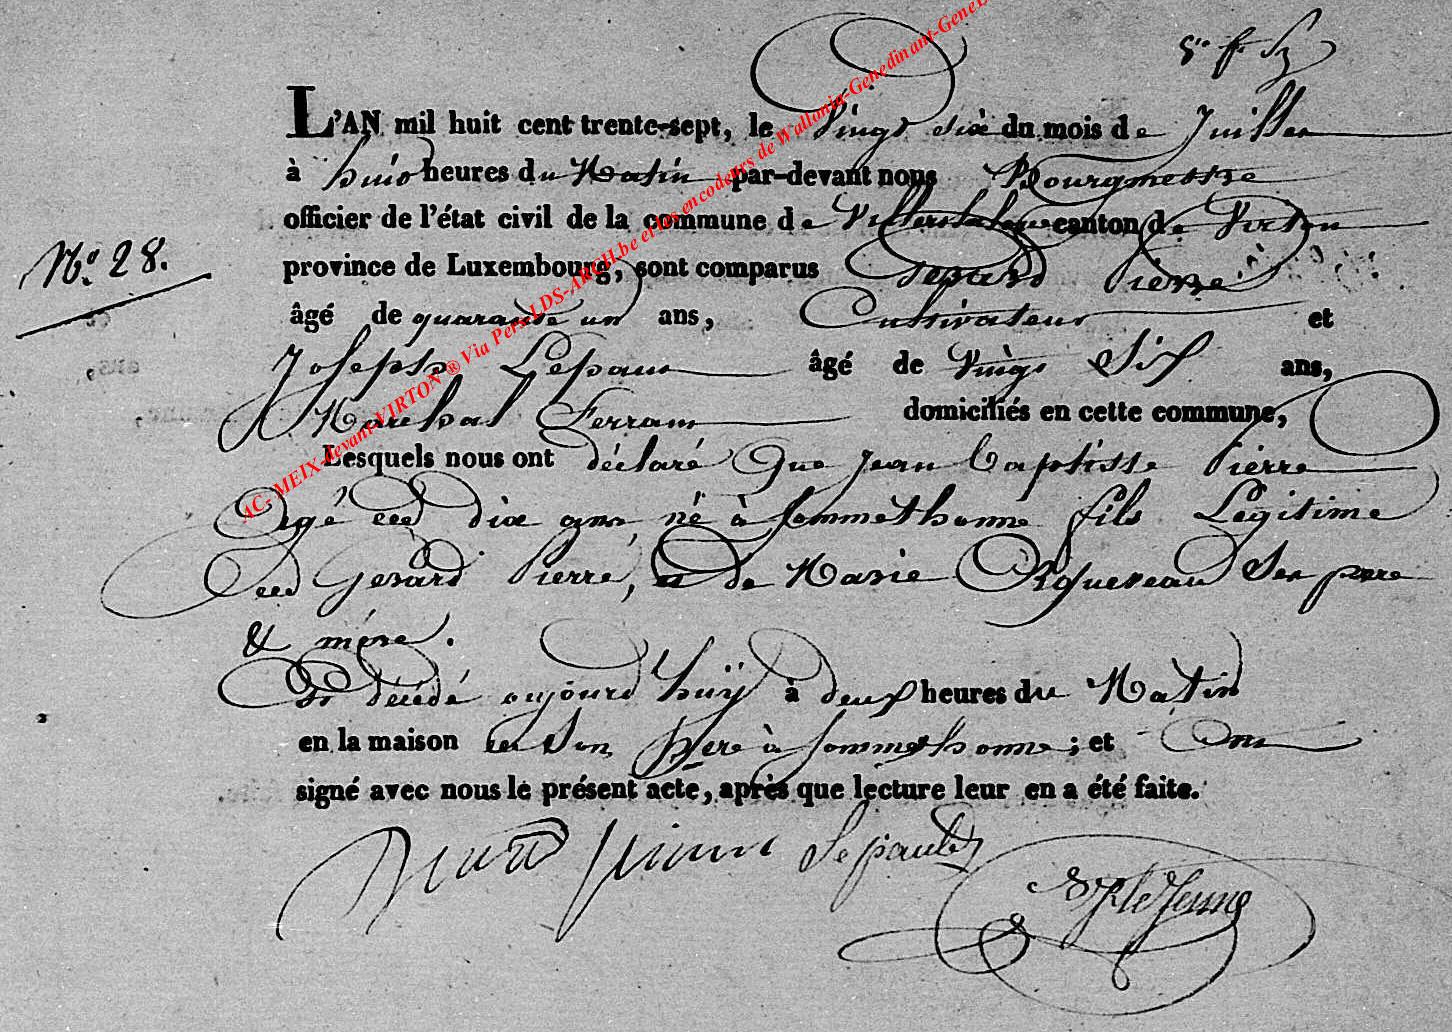 L'AN mil huit cent trente-sept, le Vingt dix du mois de Juillet
à huit heures du Matin par-devant nous Bourgmestre
officier de l'état civil de la commune de Villerslaloue canton de Virton
N.° 28.
province de Luxembourg, sont comparus Gerard Pierre
âgé de quarante un ans, Cultivateur et
Joseph Lepaux âgé de Vingt Six ans,
Marechal Ferrant domiciliés en cette commune,
Lesquels nous ont déclaré Que Jean Baptiste Pierre
Agé de dix ans né à Sommethonne fils Légitime
de Gerard Pierre, et de Marie Ses pere
& mére.
Est décédé aujourd'huÿ à deux heures du Matin
en la maison de Son Père à Sommethonne ; et Ont
signé avec nous le présent acte, après que lecture leur en a été faite.
Pierre Lepault Lejeune
AC- MEIX-devant-VIRTON ® Via Pers LDS-ARCH.be et les encodeurs de Wallonia-Genedinant-Gene